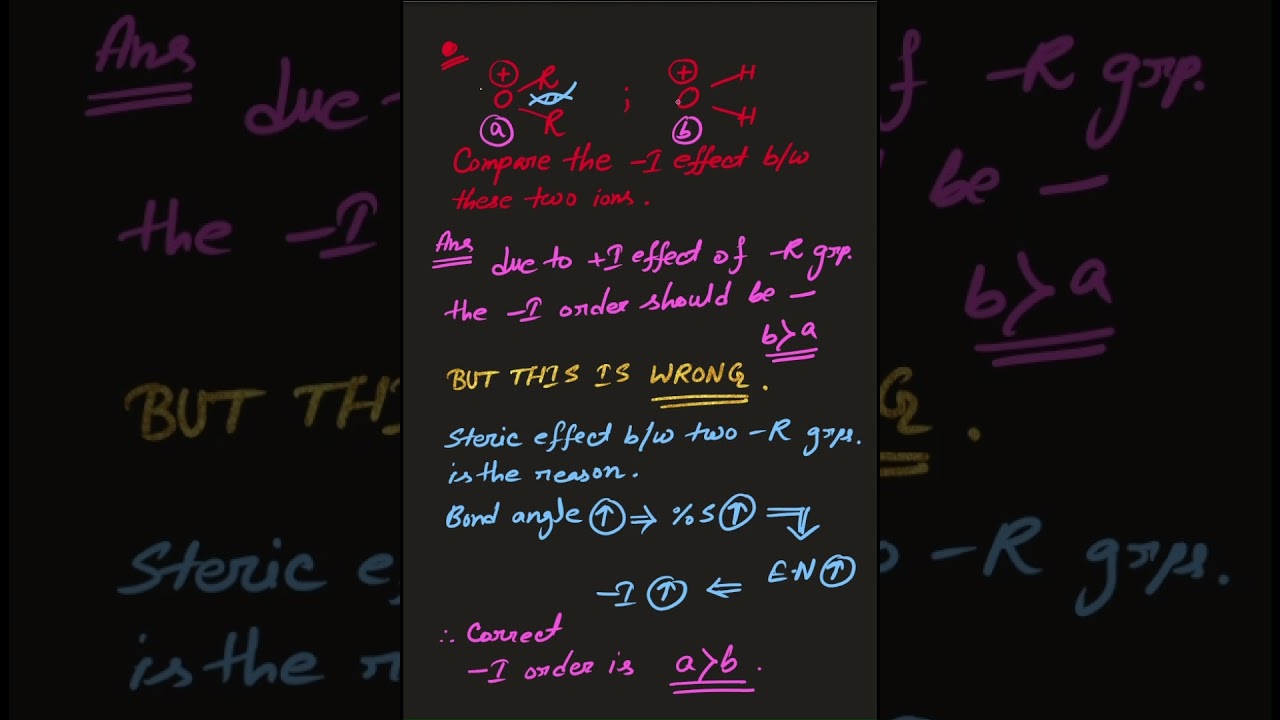 ⊕
O
R
R
ⓐ
;
⊕
O
H
H
ⓑ
Compare the -I effect b/w
these two ions.
Ans due to +I effect of -R grp.
the -I order should be -
b>a
BUT THIS IS WRONG.
Steric effect b/w two -R grps.
is the reason.
Bond angle ↑ ⇒ %S ↑ ⇒
E.N ↑
-I ↑ ⇐
∴ Correct
-I order is a>b.